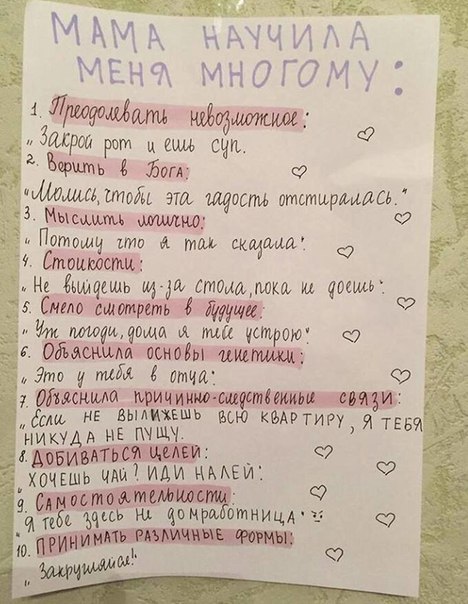 МАМА НАУЧИЛА
МЕНЯ МНОГОМУ:
1. Преодолевать невозможное:
„Закрой рот и ешь суп.
2. Верить в Бога:
„Молись, чтобы эта гадость отстиралась."
3. Мыслить логично:
„Потому что я так сказала".
4. Стоикости:
„Не выйдешь из-за стола, пока не доешь".
5. Смело смотреть в будущее:
„Уж погоди, дома я тебе устрою"
6. Объяснила основы генетики:
„Это у тебя в отца".
7. Объяснила причинно-следственные связи:
„Если не вылижешь всю квартиру, я тебя
никуда не пущу.
8. Добиваться целей:
„Хочешь чай? Иди налей".
9. Самостоятельности:
„Я тебе здесь не домработница"
10. Принимать различные формы:
„Закругляйся!"